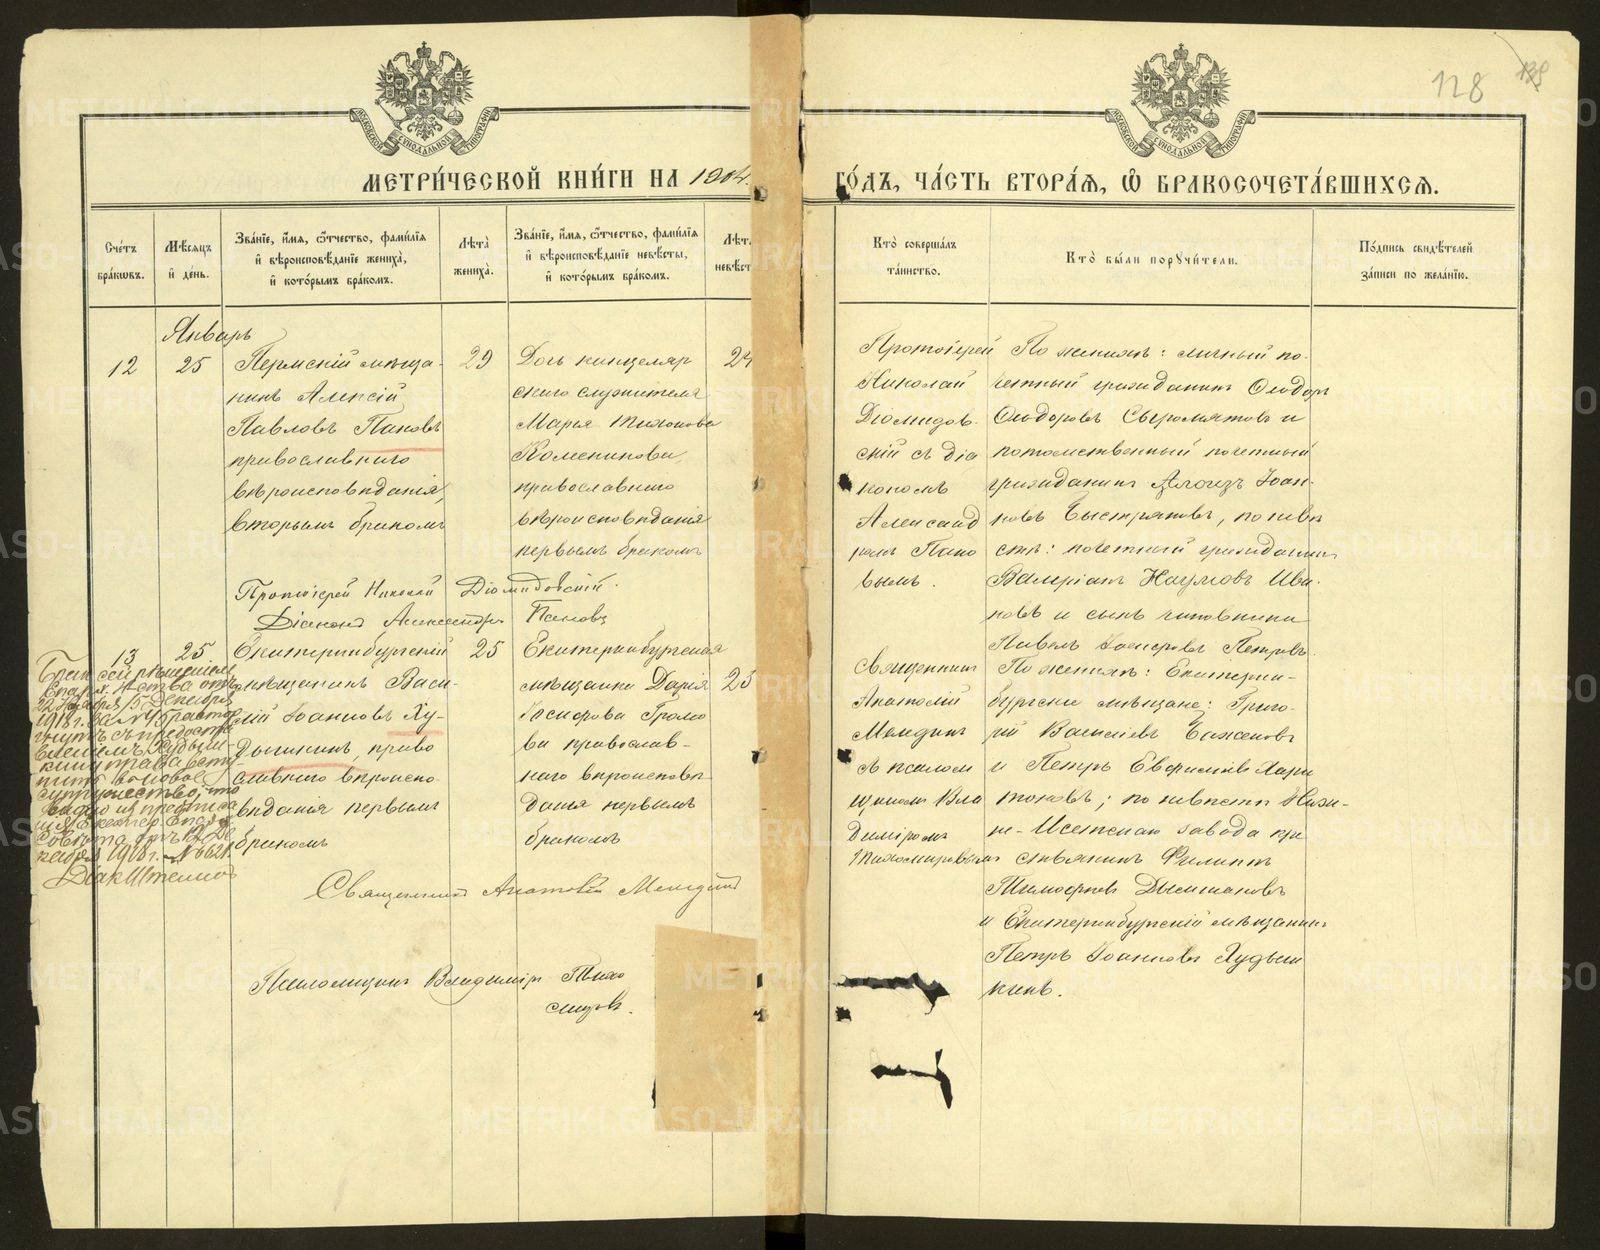 128
МЕТРИЧЕСКОЙ КНИГИ НА 1904
ГОДЪ, ЧАСТЬ ВТОРАЯ, Ѡ БРАКОСОЧЕТАВШИХСЯ.
Счетъ браковъ.
Мѣсяцъ и день.
Званіе, имя, отчество, фамилія
и вѣроисповѣданіе жениха,
и которымъ бракомъ.
Лѣта
жениха.
Званіе, имя, отчество, фамилія
и вѣроисповѣданіе невѣсты,
и которымъ бракомъ.
Лѣт
невѣст
Кто совершалъ
таинство.
Кто были поручители.
Подпись свидѣтелей
записи по желанію.
Январь
12
25
Пермскій мѣща-
нинъ Алексій
Павловъ Пановъ
православнаго
вѣроисповѣданія,
вторымъ бракомъ
29
Дочь канцеляр
скаго служителя
Марья Тихонова
православнаго
вѣроисповѣданія
первымъ бракомъ
24
Протоіерей
Николай
Діомидов-
скій съ діа
кономъ
Александ
ромъ Пано
вымъ.
По женихѣ: личный по-
четный гражданинъ Ѳеодоръ
Ѳеодоровъ Сыромятовъ и
потомственный почетный
гражданинъ Алоизъ Іоан-
новъ Быстряковъ, по невѣ
стѣ: почетный гражданинъ
Валеріанъ Наумовъ Ива-
новъ и сынъ чиновника
Павелъ Іосифовъ Петровъ.
Протоіерей Николай Діомидовскій.
Діаконъ Александръ Пановъ
13
25
Екатеринбургскій
мѣщанинъ Васи-
лій Іоанновъ Ху-
дышкинъ, право
славнаго вѣроиспо-
вѣданія первымъ
бракомъ
25
Екатеринбургская
мѣщанка Дарія
Іосифова Громо
ва православ-
наго вѣроисповѣ
данія первымъ
бракомъ
23
Священникъ
Анатолій
съ псалом
щикомъ Вла
диміромъ
Тихомировымъ
По женихѣ: Екатерин-
бургскіе мѣщане: Григо-
рій Василіевъ Баженовъ
и Петръ Евфиміевъ Хари
тоновъ; по невѣстѣ Ниж-
не-Исетскаго завода кре
стьянинъ Филиппъ
Тимофеевъ
и Екатеринбургскій мѣщанинъ
Петръ Іоанновъ Худыш
кинъ.
Бракъ сей рѣшеніемъ
Епарх. Н-ства отъ
22 ноября/5 декабря
1918 г. за № 45 растор
гнутъ съ предоста
вленіемъ Худыш-
кину права всту
пить въ новое
супружество, что
видно изъ предписа
нія Екатер. Епарх.
Совѣта отъ 12 Де
кабря 1918 г. № 6621.
Священникъ Анатолій
Псаломщикъ Владиміръ Тихо
мировъ.